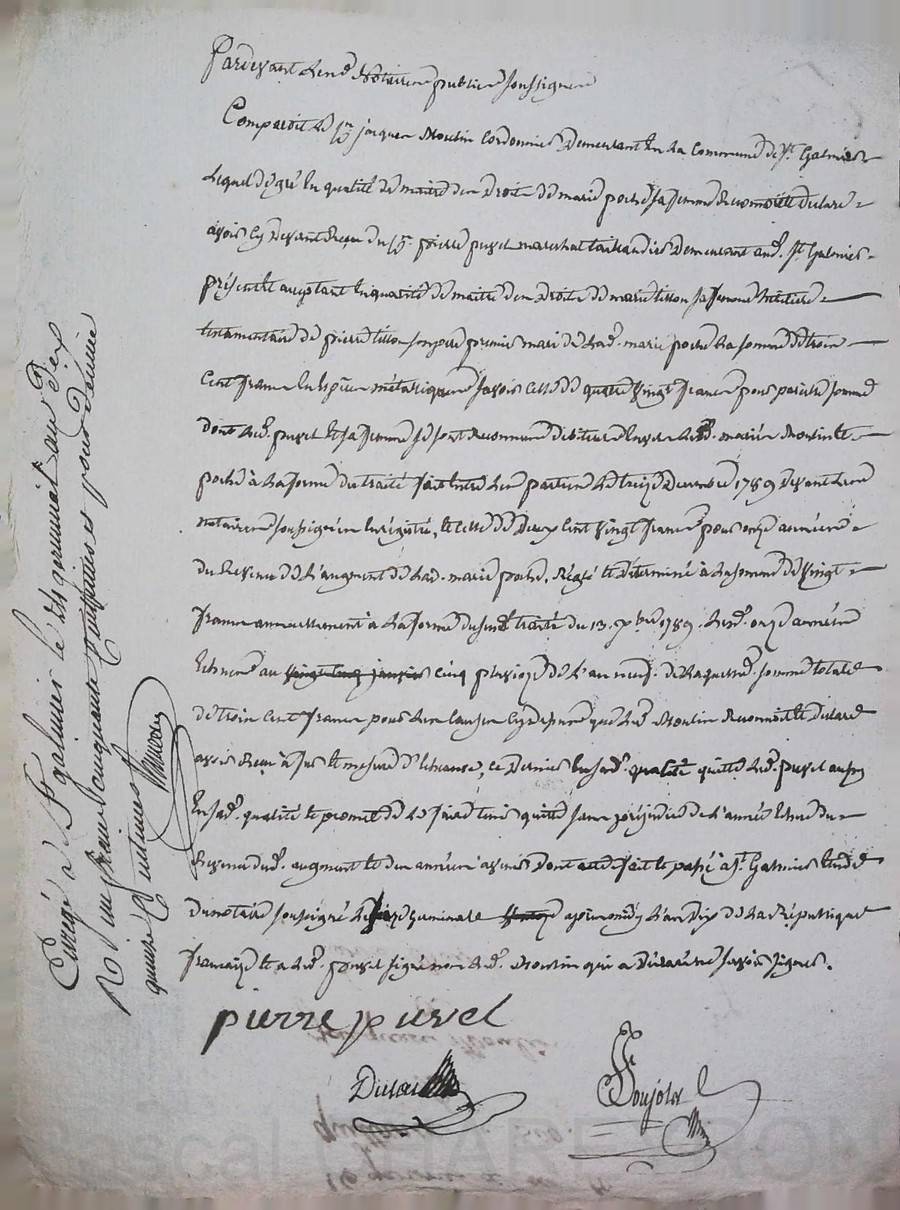 Pardevant les nores publics soussignés
Comparoit le sr jacques Moulin cordonnier demeurant en la commune de st Galmier
Lequel de gré en qualité de maitre des droits de marie poché sa femme reconnoit et declare
avoir cy devant reçu du sr pierre puvel marechal taillandier demeurant aud. st Galmier
présent et acceptant en qualité de maitre des droits de marie tisson sa femme héritiere
testamentaire de pierre tisson son pere premier mari de lad. marie poché la somme de trois
cent francs en espèces métaliques savoir celle de quatre vingt francs pour pareille somme
dont led. puvel et sa femme se sont reconnus debiteurs envers les d. mariés Moulin et
poché à la forme du traité fait entre les parties le treize decembre 1789 devant les
notaires soussignés enregistré, et celle de deux cent vingt francs pour onze années
du revenu de l'augment de lad. marie poché, réglé et déterminé à la somme de vingt
francs annuellement à la forme dususd. traité du 13. xbre 1789. lesd. onze années
echues au vingt cinq janvier cinq pluviose de l'an neuf. de laquelle somme totale
de trois cent francs pour les causes cy dessus que led. Moulin reconnoit et declare
avoir reçu à fur et mesure d'echeance, ce dernier en sad. qualité quitte led. puvel aussi
en sad. qualité et promet de le faire tenir quitte sans préjudice de l'année echue du
revenu dud. augment et des années à venir dont acte fait et passé à st Galmier etude
du notaire soussigné le germinal après midy l'an dix de la République
française et a led. puvel signé non led. Moulin qui a déclaré ne savoir signer.
pierre puvel
Enregé à St galmier le dix germinal an dix
R. un franc cinquante centimes et pour dixme
quinze centimes